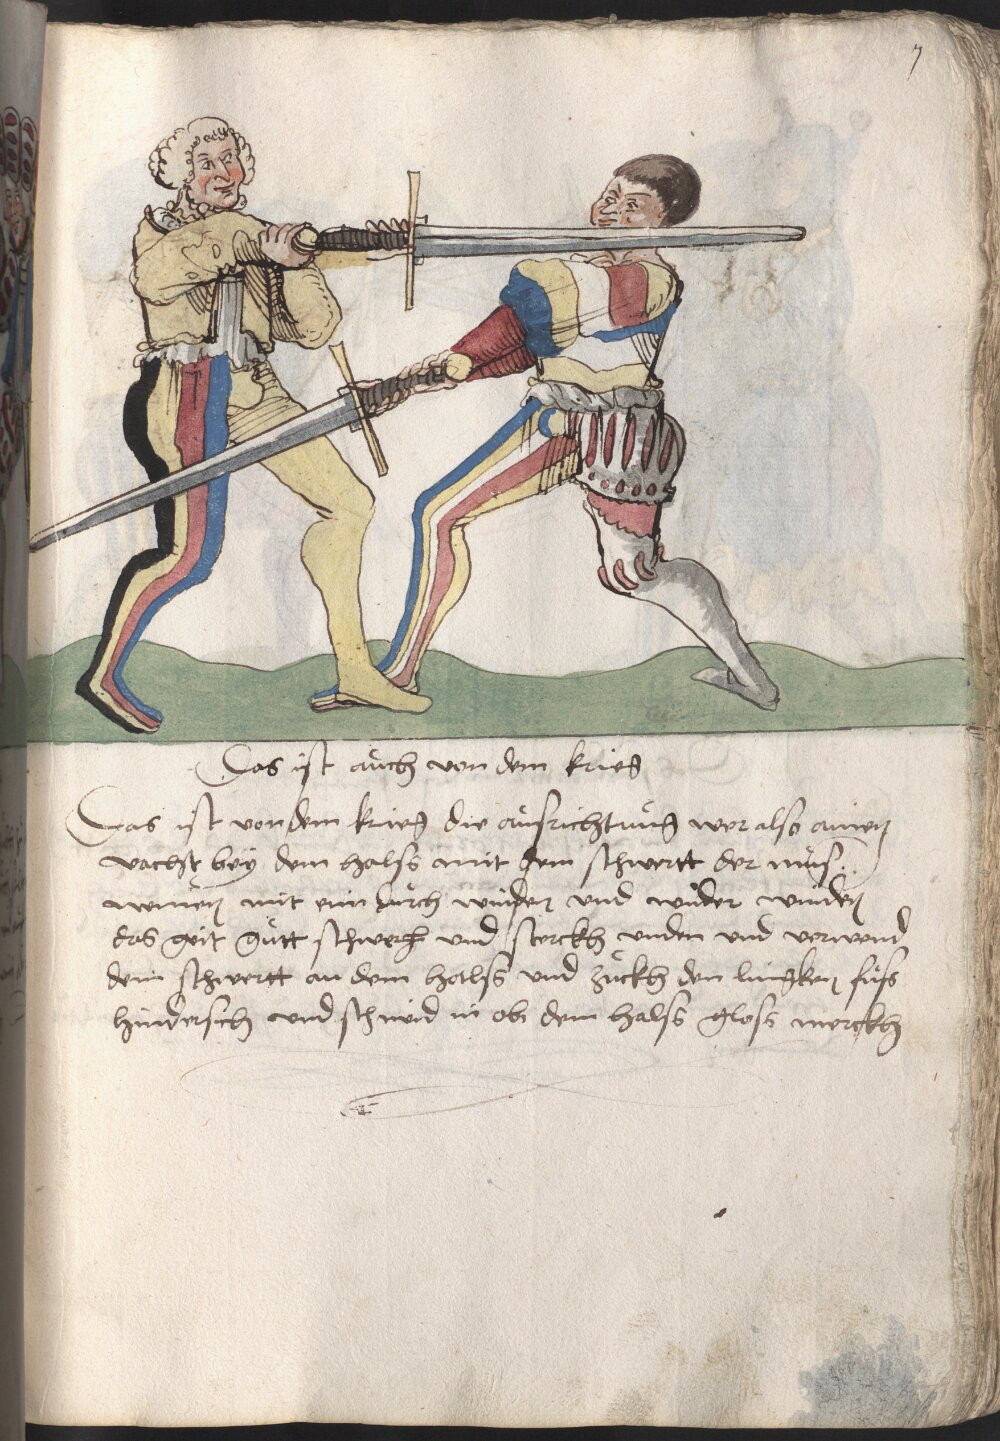 7
Das ist auch von dem krieg
Das ist von dem krieg die aufrichtung wer also ainen
vachst bey dem halss mit dem schwertt der mus
mit ein durch winden und wider winden
das geit gutt schwech und sterckh unden und verwend
dein schwertt an dem halss und zuckh den lingken fuss
hindersich und schneid in ob dem halss gloss merckh